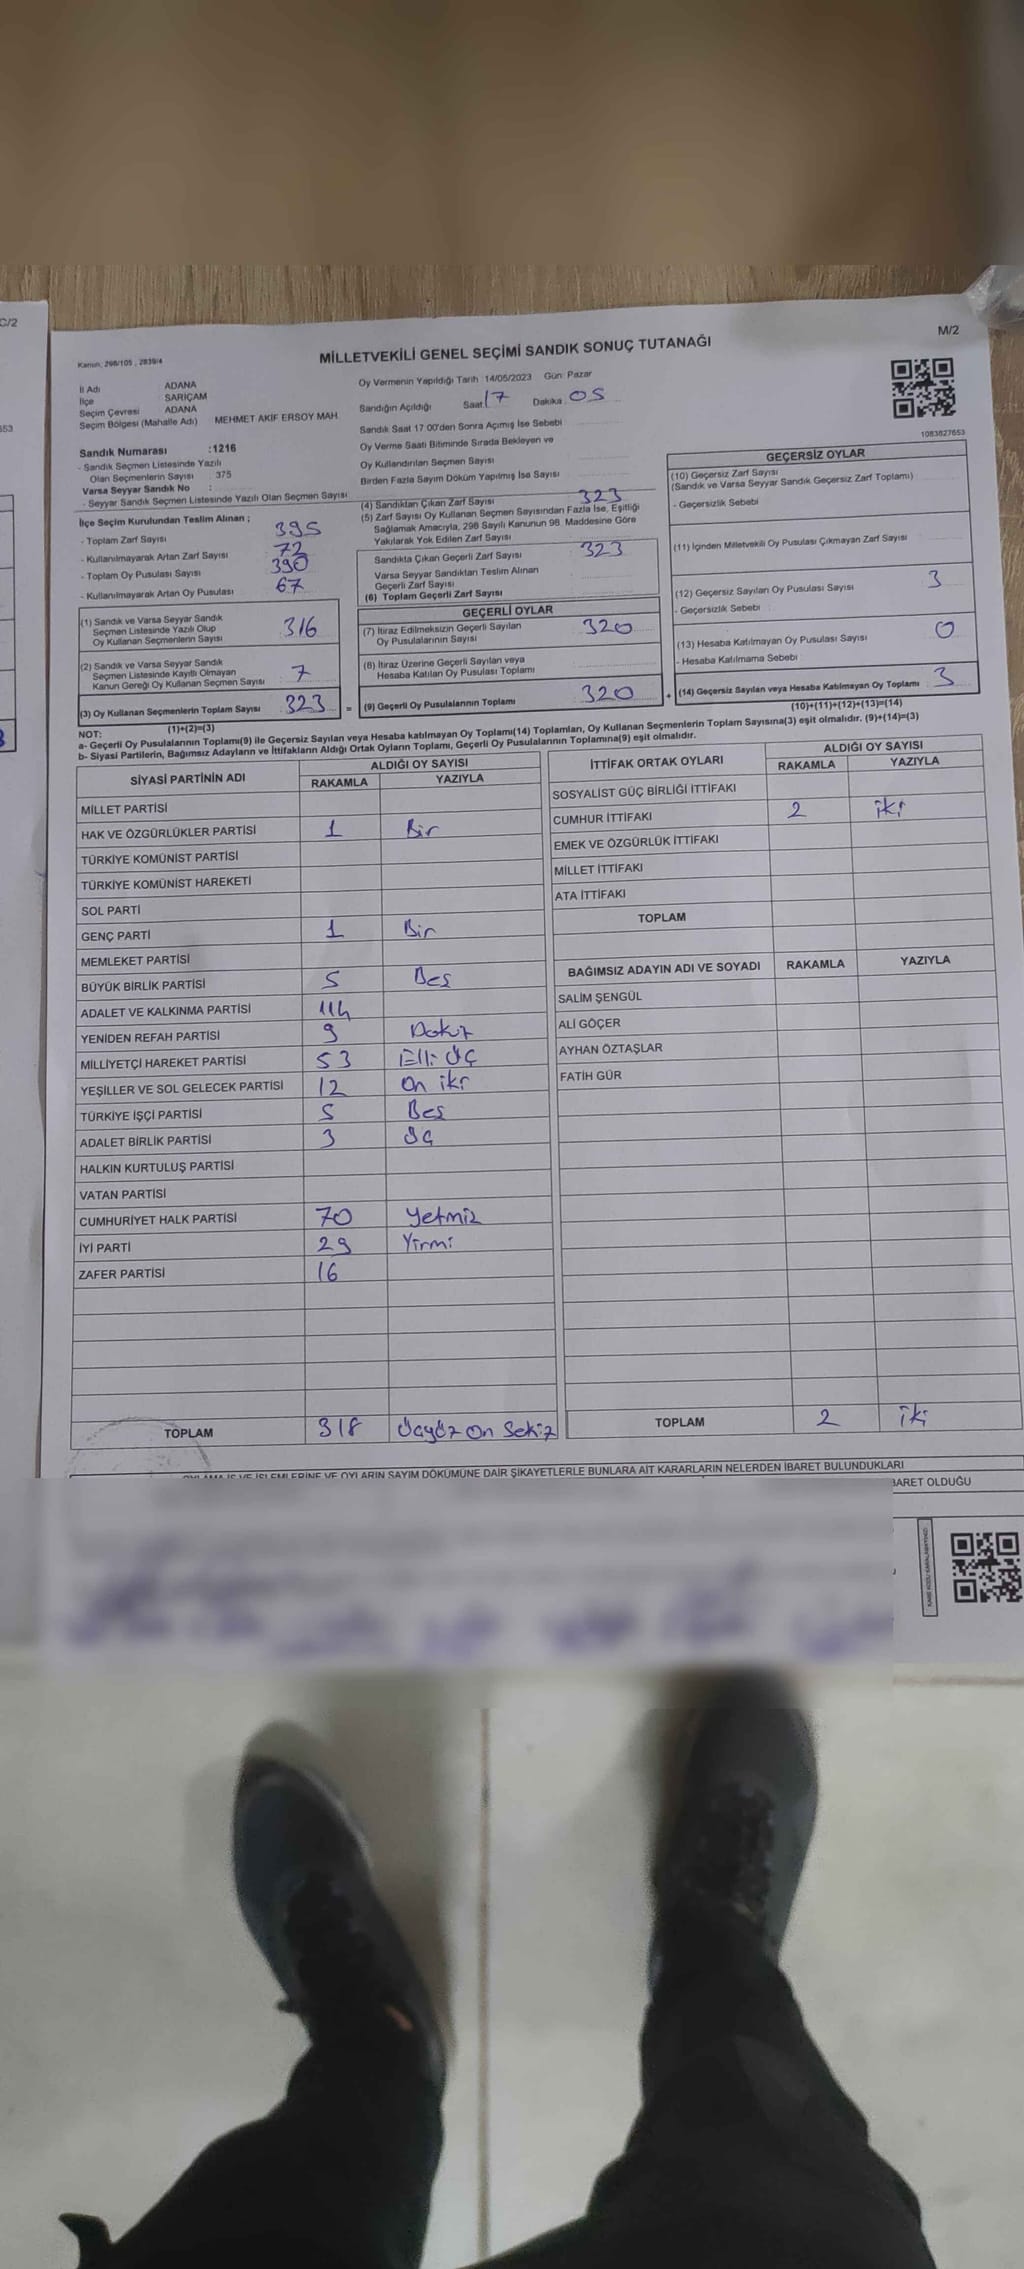 C/2
M/2
Kanun: 298/105 , 2839/4
MİLLETVEKİLİ GENEL SEÇİMİ SANDIK SONUÇ TUTANAĞI
İl Adı ADANA
İlçe SARIÇAM
Seçim Çevresi ADANA
Seçim Bölgesi (Mahalle Adı) MEHMET AKİF ERSOY MAH.
Sandık Numarası :1216
- Sandık Seçmen Listesinde Yazılı
Olan Seçmenlerin Sayısı 375
Varsa Seyyar Sandık No :
- Seyyar Sandık Seçmen Listesinde Yazılı Olan Seçmen Sayısı
Oy Vermenin Yapıldığı Tarih 14/05/2023 Gün: Pazar
Sandığın Açıldığı Saat 17 Dakika 05
Sandık Saat 17.00'den Sonra Açımış İse Sebebi
Oy Verme Saati Bitiminde Sırada Bekleyen ve
Oy Kullandırılan Seçmen Sayısı
Birden Fazla Sayım Döküm Yapılmış İse Sayısı
1083627653
653
İlçe Seçim Kurulundan Teslim Alınan ;
- Toplam Zarf Sayısı 395
- Kullanılmayarak Artan Zarf Sayısı 72
- Toplam Oy Pusulası Sayısı 390
- Kullanılmayarak Artan Oy Pusulası 67
(1) Sandık ve Varsa Seyyar Sandık
Seçmen Listesinde Yazılı Olup
Oy Kullanan Seçmenlerin Sayısı 316
(2) Sandık ve Varsa Seyyar Sandık
Seçmen Listesinde Kayıtlı Olmayan
Kanun Gereği Oy Kullanan Seçmen Sayısı 7
(3) Oy Kullanan Seçmenlerin Toplam Sayısı 323 =
(1)+(2)=(3)
(4) Sandıktan Çıkan Zarf Sayısı 323
(5) Zarf Sayısı Oy Kullanan Seçmen Sayısından Fazla İse, Eşitliği
Sağlamak Amacıyla, 298 Sayılı Kanunun 98. Maddesine Göre
Yakılarak Yok Edilen Zarf Sayısı
Sandıkta Çıkan Geçerli Zarf Sayısı 323
Varsa Seyyar Sandıktan Teslim Alınan
Geçerli Zarf Sayısı
(6) Toplam Geçerli Zarf Sayısı
GEÇERLİ OYLAR
(7) İtiraz Edilmeksizin Geçerli Sayılan
Oy Pusulalarının Sayısı 320
(8) İtiraz Üzerine Geçerli Sayılan veya
Hesaba Katılan Oy Pusulası Toplamı
(9) Geçerli Oy Pusulalarının Toplamı 320 +
GEÇERSİZ OYLAR
(10) Geçersiz Zarf Sayısı
(Sandık ve Varsa Seyyar Sandık Geçersiz Zarf Toplamı)
- Geçersizlik Sebebi
(11) İçinden Milletvekili Oy Pusulası Çıkmayan Zarf Sayısı
(12) Geçersiz Sayılan Oy Pusulası Sayısı 3
- Geçersizlik Sebebi :
(13) Hesaba Katılmayan Oy Pusulası Sayısı 0
- Hesaba Katılmama Sebebi
(14) Geçersiz Sayılan veya Hesaba Katılmayan Oy Toplamı 3
(10)+(11)+(12)+(13)=(14)
NOT:
a- Geçerli Oy Pusulalarının Toplamı(9) ile Geçersiz Sayılan veya Hesaba katılmayan Oy Toplamı(14) Toplamları, Oy Kullanan Seçmenlerin Toplam Sayısına(3) eşit olmalıdır. (9)+(14)=(3)
b- Siyasi Partilerin, Bağımsız Adayların ve İttifakların Aldığı Ortak Oyların Toplamı, Geçerli Oy Pusulalarının Toplamına(9) eşit olmalıdır.
SİYASİ PARTİNİN ADI ALDIĞI OY SAYISI
RAKAMLA YAZIYLA
MİLLET PARTİSİ
HAK VE ÖZGÜRLÜKLER PARTİSİ 1 Bir
TÜRKİYE KOMÜNİST PARTİSİ
TÜRKİYE KOMÜNİST HAREKETİ
SOL PARTİ
GENÇ PARTİ 1 Bir
MEMLEKET PARTİSİ
BÜYÜK BİRLİK PARTİSİ 5 Beş
ADALET VE KALKINMA PARTİSİ 114
YENİDEN REFAH PARTİSİ 9 Dokuz
MİLLİYETÇİ HAREKET PARTİSİ 53 Elli Üç
YEŞİLLER VE SOL GELECEK PARTİSİ 12 On iki
TÜRKİYE İŞÇİ PARTİSİ 5 Beş
ADALET BİRLİK PARTİSİ 3 Üç
HALKIN KURTULUŞ PARTİSİ
VATAN PARTİSİ
CUMHURİYET HALK PARTİSİ 70 Yetmiş
İYİ PARTİ 29 Yirmi
ZAFER PARTİSİ 16
TOPLAM 318 Üçyüz On Sekiz
İTTİFAK ORTAK OYLARI ALDIĞI OY SAYISI
RAKAMLA YAZIYLA
SOSYALİST GÜÇ BİRLİĞİ İTTİFAKI
CUMHUR İTTİFAKI 2 iki
EMEK VE ÖZGÜRLÜK İTTİFAKI
MİLLET İTTİFAKI
ATA İTTİFAKI
TOPLAM
BAĞIMSIZ ADAYIN ADI VE SOYADI RAKAMLA YAZIYLA
SALİM ŞENGÜL
ALİ GÖÇER
AYHAN ÖZTAŞLAR
FATİH GÜR
TOPLAM 2 iki
OYLAMA İŞ VE İŞLEMLERİNE VE OYLARIN SAYIM DÖKÜMÜNE DAİR ŞİKAYETLERLE BUNLARA AİT KARARLARIN NELERDEN İBARET BULUNDUKLARI
BARET OLDUĞU